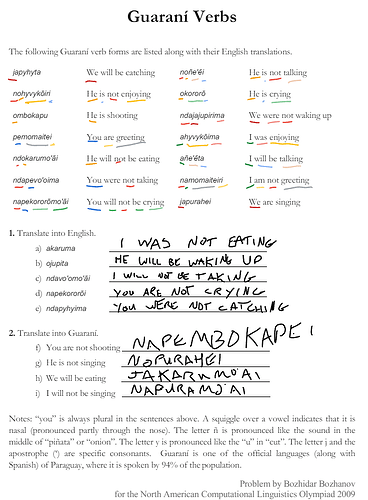 Guaraní Verbs
The following Guaraní verb forms are listed along with their English translations.
japyhyta We will be catching noñe'ẽi He is not talking
nohyvykõiri He is not enjoying okororõ He is crying
ombokapu He is shooting ndajajupirima We were not waking up
pemomaitei You are greeting ahyvykõima I was enjoying
ndokarumo'ãi He will not be eating añe'ẽta I will be talking
ndapevo'oima You were not taking namomaiteiri I am not greeting
napekororõmo'ãi You will not be crying japurahei We are singing
1. Translate into English.
a) akaruma I WAS NOT EATING
b) ojupita HE WILL BE WAKING UP
c) ndavo'omo'ãi I WILL NOT BE TAKING
d) napekororõi YOU ARE NOT CRYING
e) ndapyhyima YOU WERE NOT CATCHING
2. Translate into Guaraní.
f) You are not shooting NAPEMBOKAPEI
g) He is not singing NOPURAHEI
h) We will be eating JAKARUMO'AI
i) I will not be singing NAPURAMO'AI
Notes: "you" is always plural in the sentences above. A squiggle over a vowel indicates that it is
nasal (pronounced partly through the nose). The letter ñ is pronounced like the sound in the
middle of "piñata" or "onion". The letter y is pronounced like the "u" in "cut". The letter j and the
apostrophe (') are specific consonants. Guaraní is one of the official languages (along with
Spanish) of Paraguay, where it is spoken by 94% of the population.
Problem by Bozhidar Bozhanov
for the North American Computational Linguistics Olympiad 2009